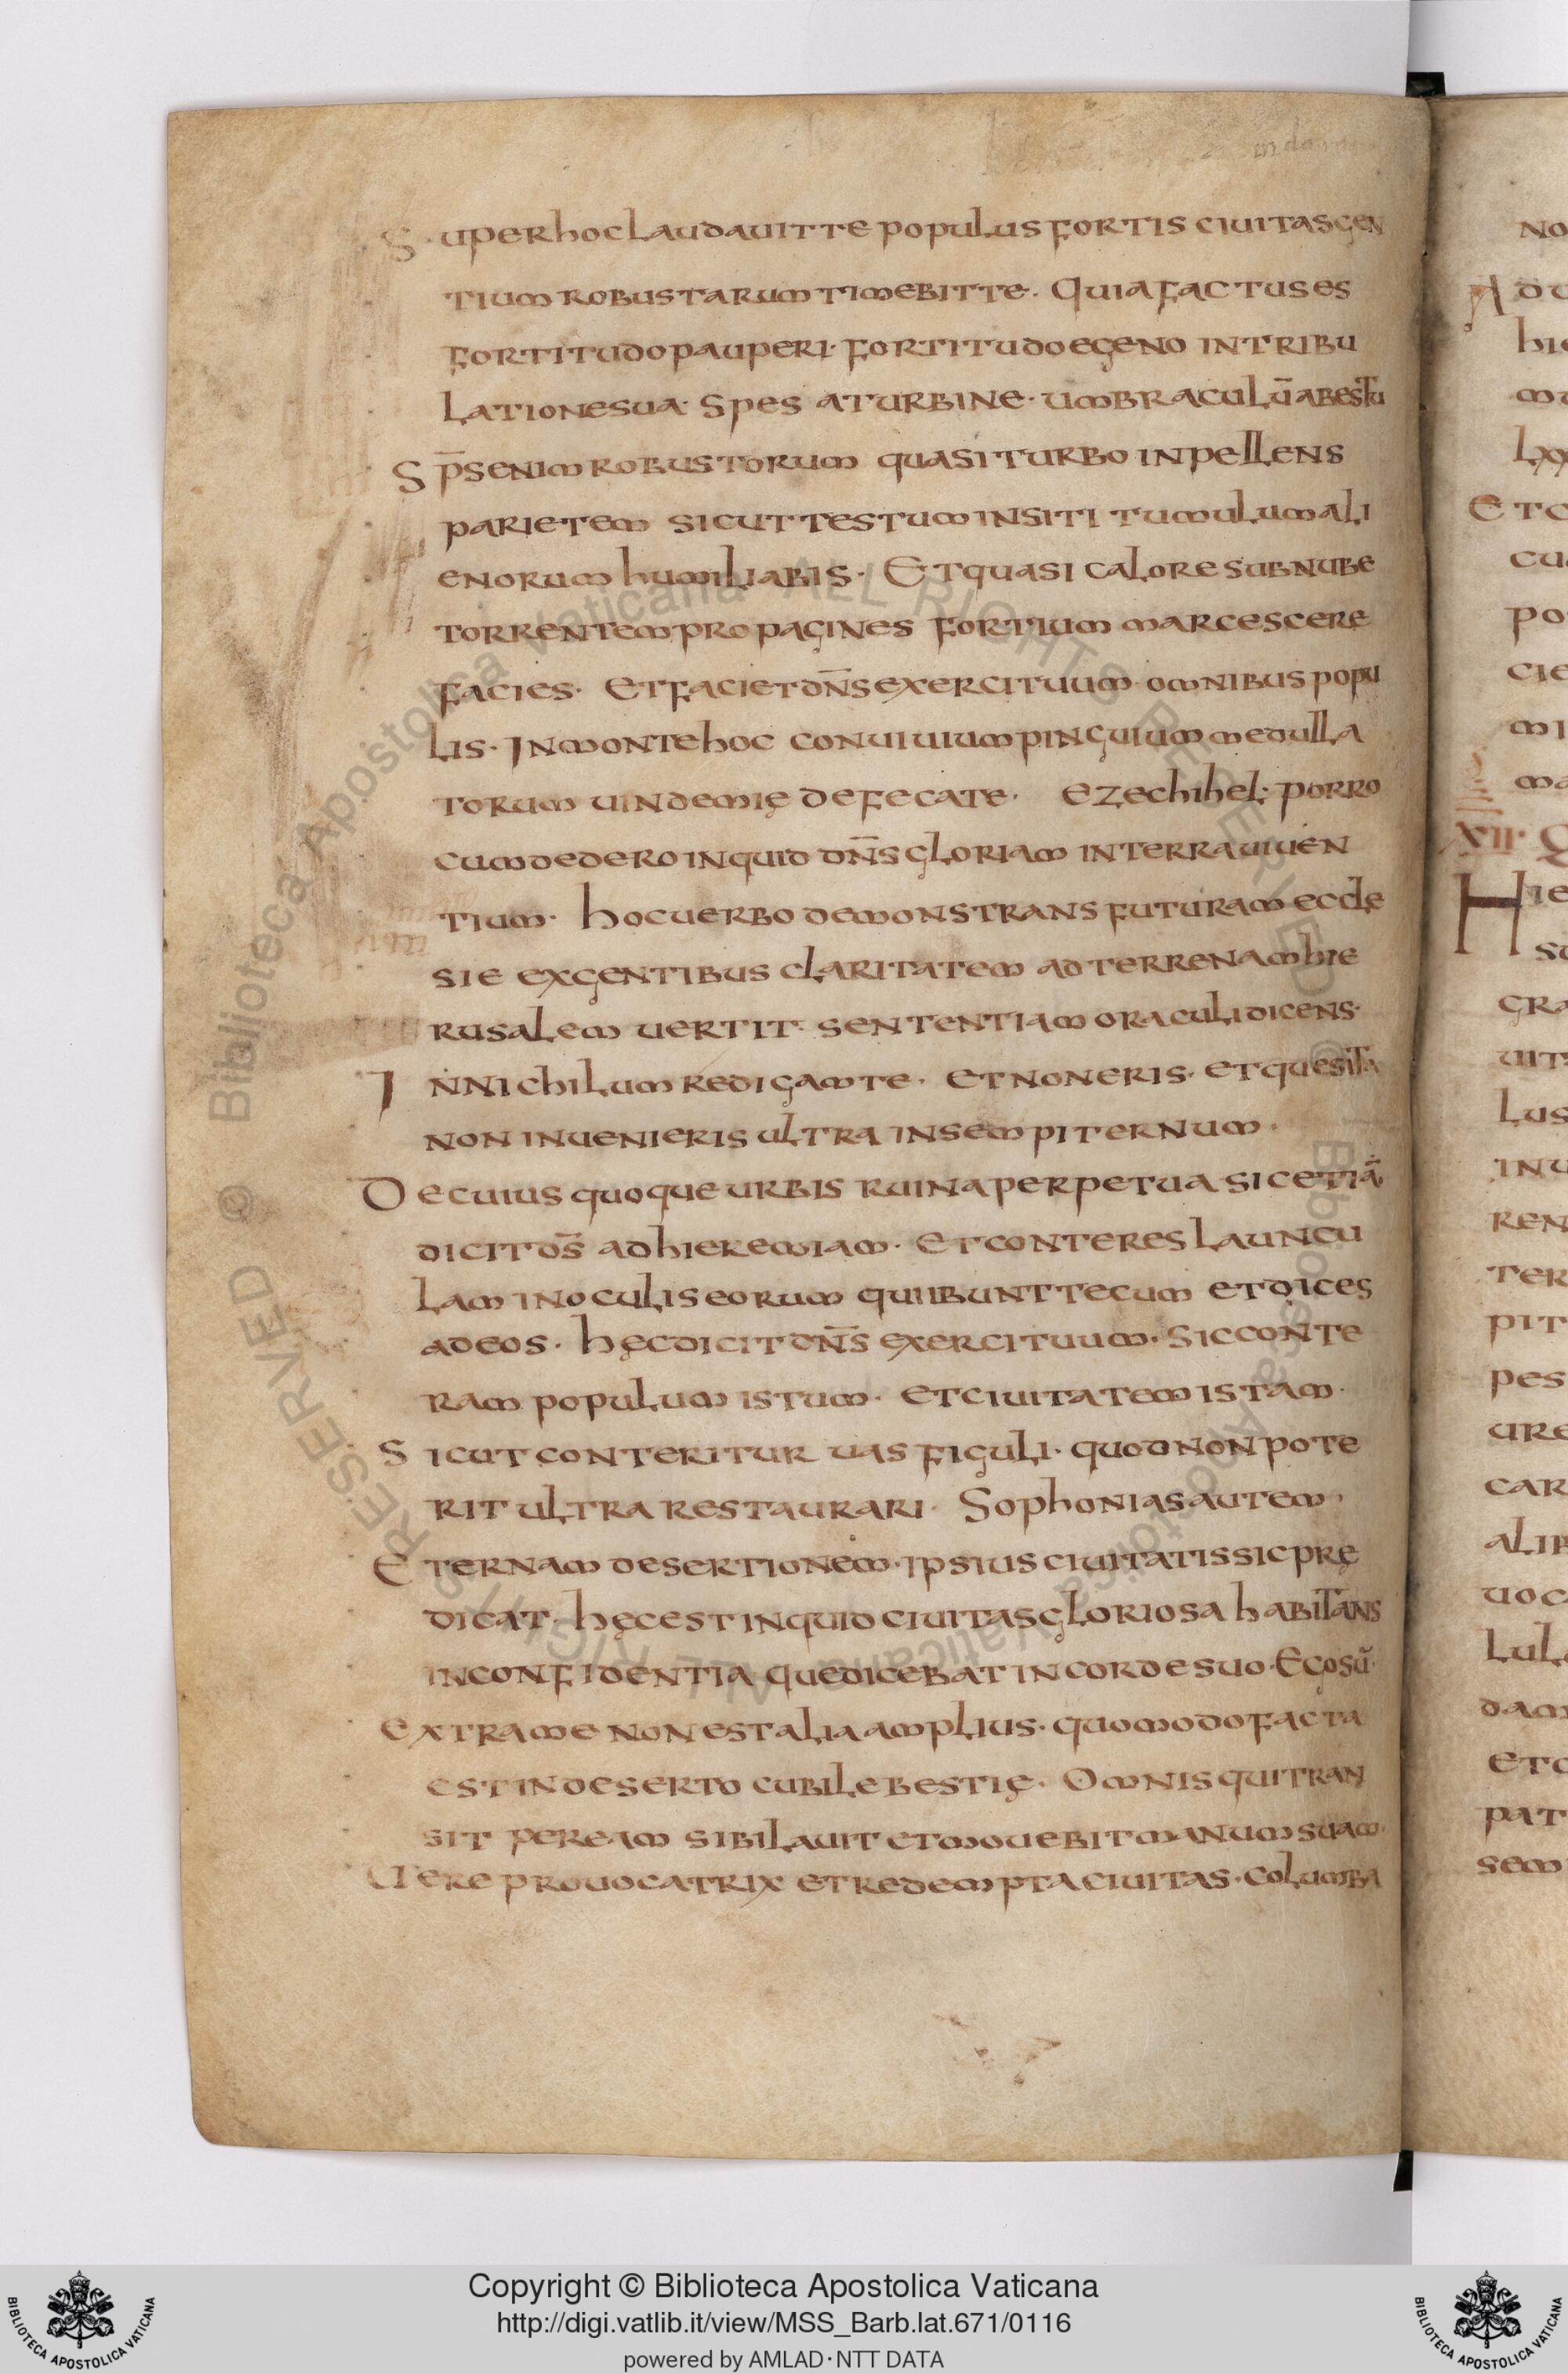 Super hoc laudauit te populus fortis ciuitas gen
tium robustarum timebit te. Quia factus es
fortitudo pauperi. fortitudo egeno in tribu
latione sua. Spes a turbine. umbraculū ab estu
Sp̄s enim robustorum quasi turbo inpellens
parietem sicut testum in siti tumulum ali
enorum humiliabis. Et quasi calore sub nube
torrentem propagines fortium marcescere
facies. et faciet dn̄s exercituum omnibus popu
lis. In monte hoc conuiuium pinguium medulla
torum uindemię defecate. ezechihel. porro
cum dedero inquid dn̄s gloriam in terra uiuen
tium. hoc uerbo demonstrans futuram eccle
sie ex gentibus claritatem ad terrenam hie
rusalem uertit. sententiam oraculi dicens.
In nichilum redigam te. et non eris. et quesita
non inuenieris ultra in sempiternum.
De cuius quoque urbis ruina perpetua sic etiā
dicit dō̄s ad hieremiam. et conteres launcu
lam in oculis eorum qui ibunt tecum et dices
ad eos. hęc dicit dn̄s exercituum. sic conte
ram populum istum. et ciuitatem istam.
Sicut conteritur uas figuli. quod non pote
rit ultra restaurari. Sophonias autem
Eternam desertionem. ipsius ciuitatis sic prę
dicat. hęc est inquid ciuitas gloriosa habitans
in confidentia que dicebat in corde suo. Ego sū.
Extra me non est alia amplius. quomodo facta
est in deserto cubile bestię. Omnis qui tran
sit per eam sibilauit et mouebit manum suam.
Uere prouocatrix et redempta ciuitas. columba
Copyright © Biblioteca Apostolica Vaticana
http://digi.vatlib.it/view/MSS_Barb.lat.671/0116
powered by AMLAD·NTT DATA